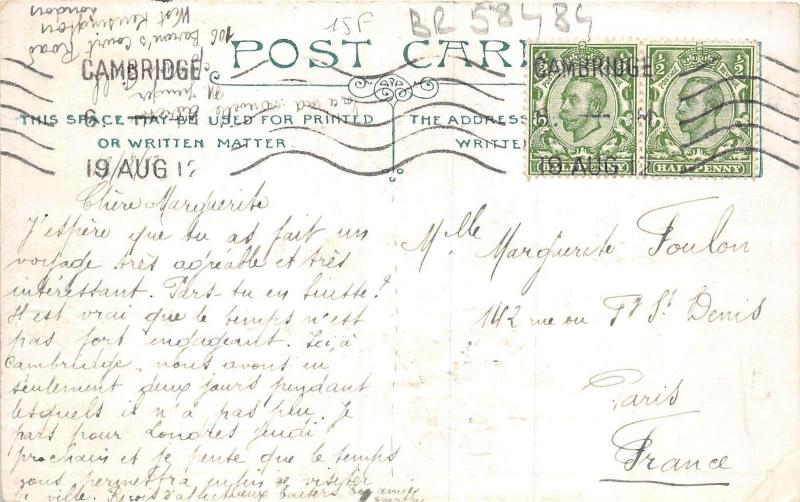 15F
BR 58484
106 Baron's Court Road
West Kensington
London
POST CARD
CAMBRIDGE
19 AUG 12
CAMBRIDGE
19 AUG 12
HALFPENNY
HALFPENNY
THIS SPACE MAY BE USED FOR PRINTED
OR WRITTEN MATTER
THE ADDRESS
WRITTEN
Chère Marguerite
J'espère que tu as fait un
voyage très agréable et très
intéressant. Pars-tu en Suisse?
Il est vrai que le temps n'est
pas fort engageant. Ici, à
Cambridge, nous avons eu
seulement deux jours pendant
lesquels il n'a pas plu. Je
pars pour Londres jeudi
prochain et je pense que le temps
nous permettra enfin de visiter
la ville. Reçois d'affectueux baisers
Mlle Marguerite Foulon
142 rue du Fg St Denis
Paris
France